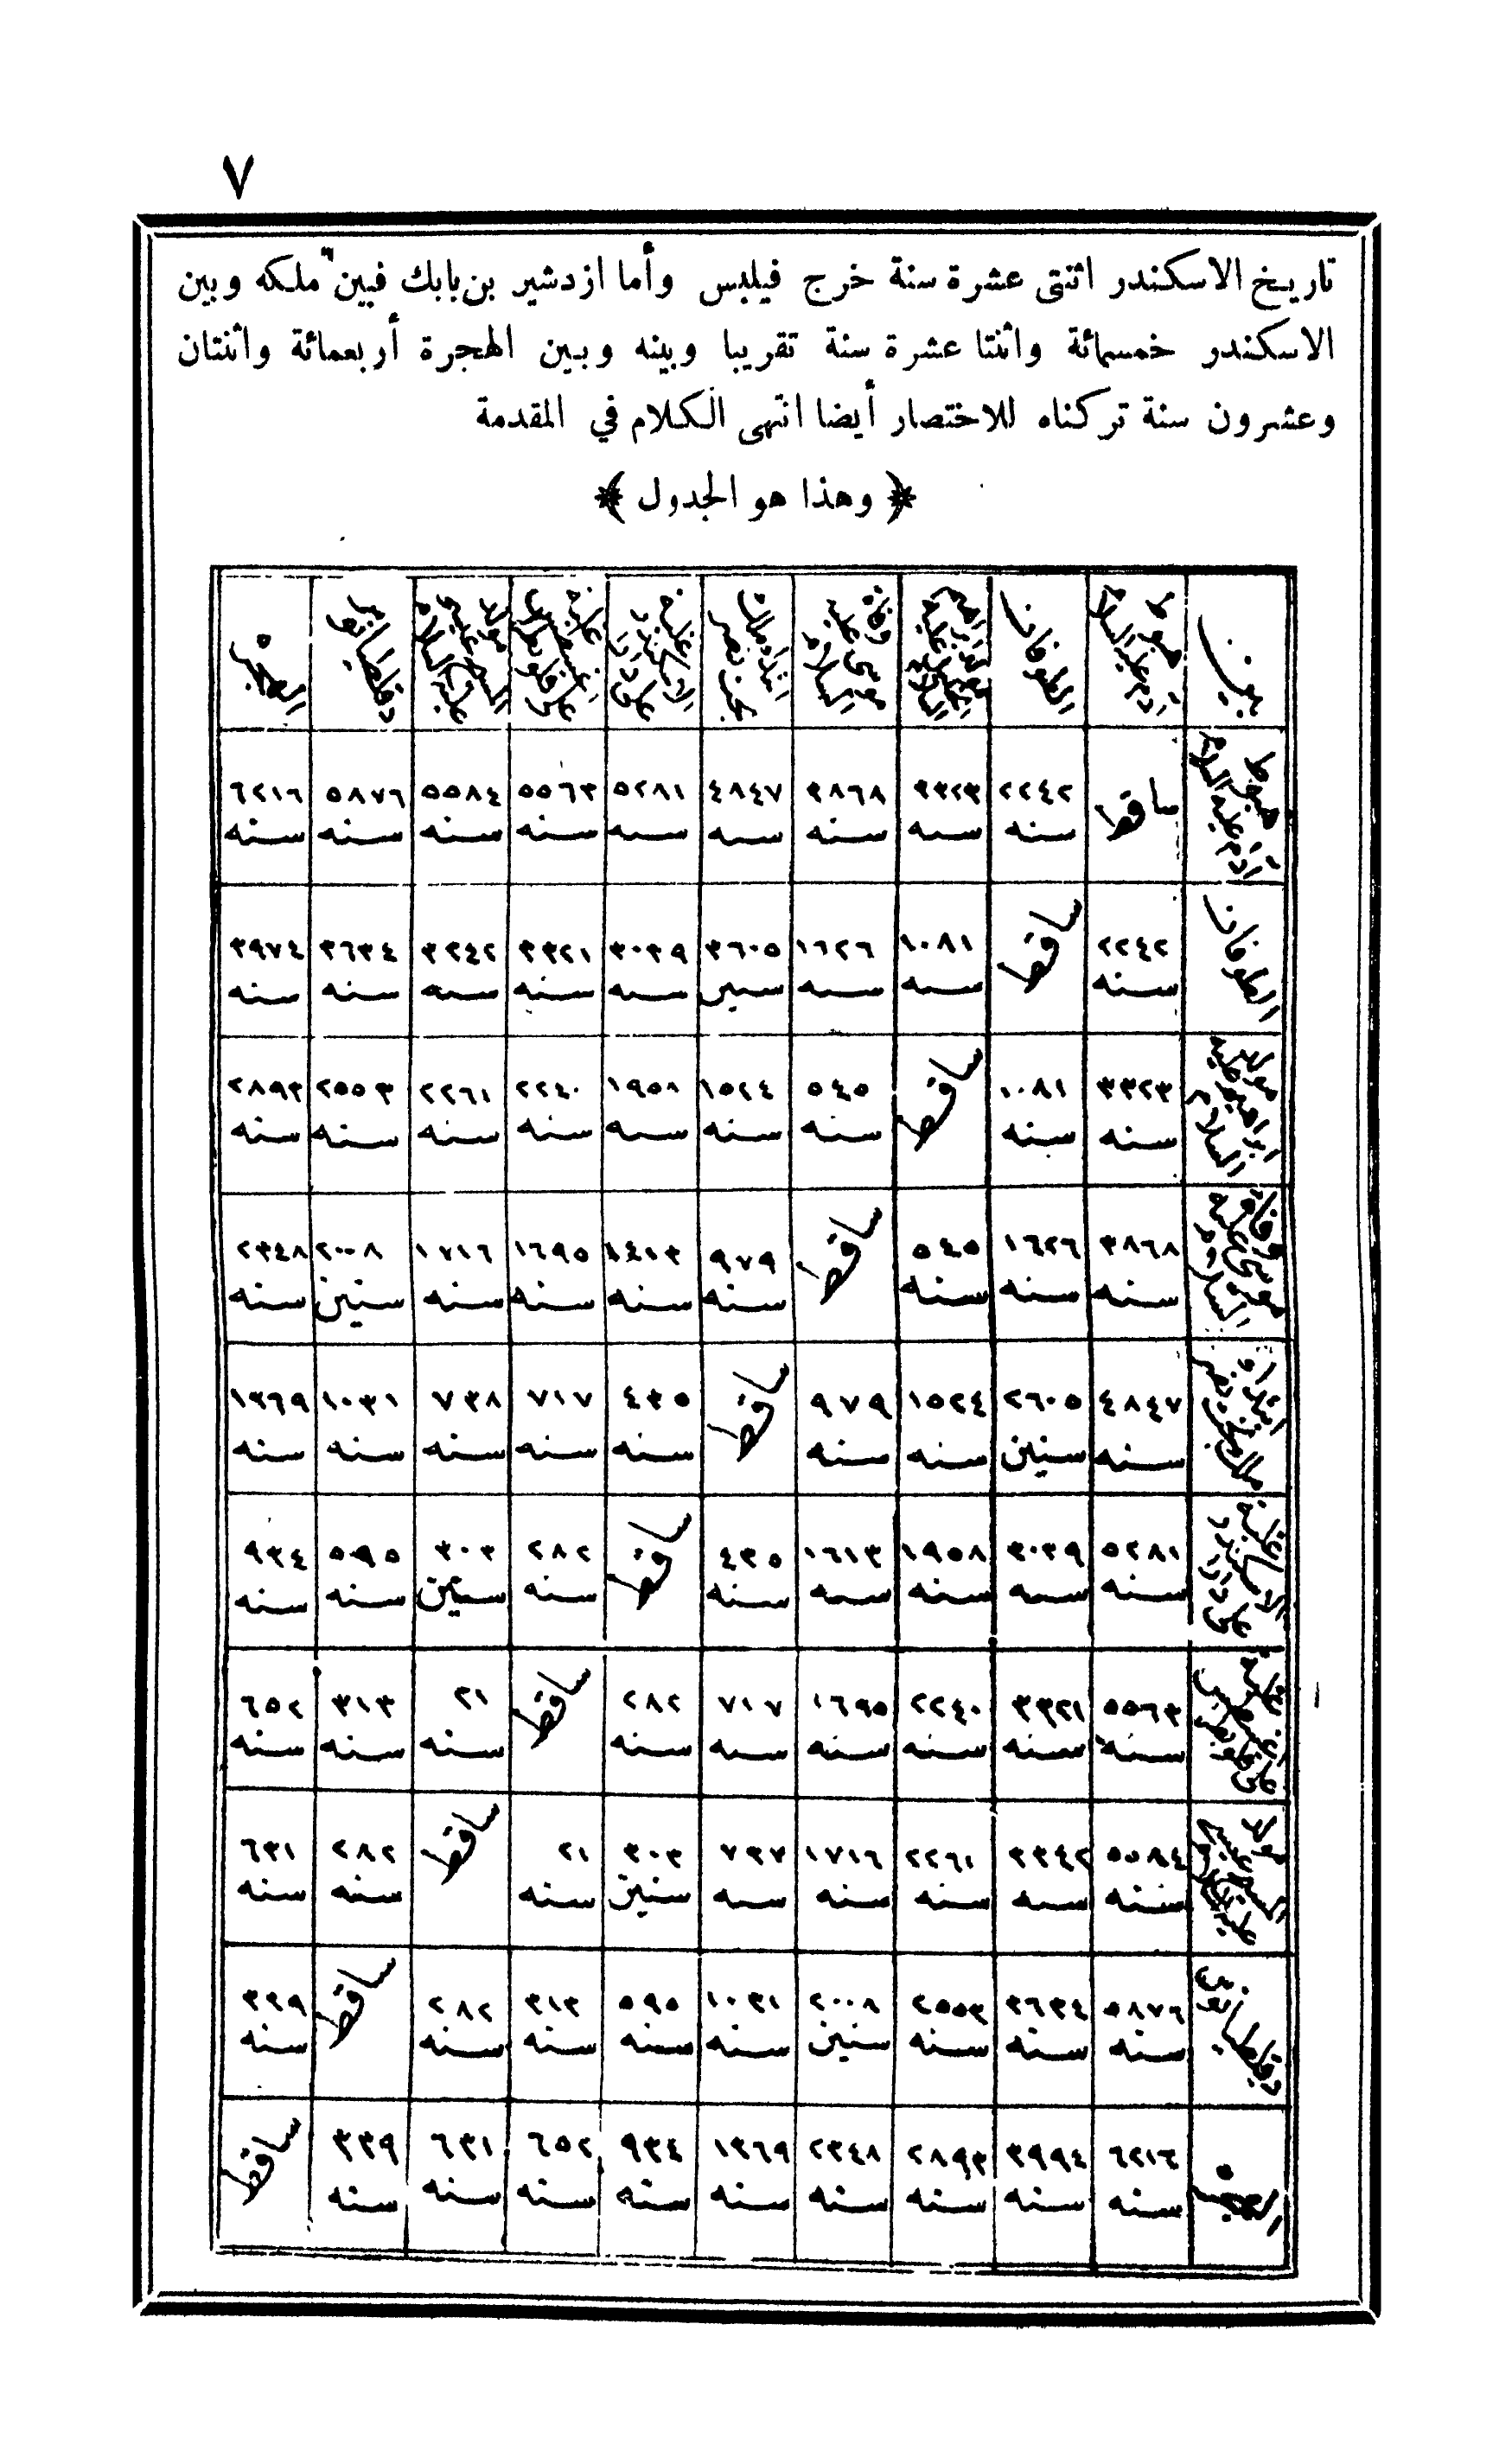 ٧
تاريخ الاسكندر اثنتى عشرة سنة خرج فيلبس وأما ازدشير بن بابك فبين ملكه وبين
الاسكندر خمسمائة واثنتا عشرة سنة تقريبا وبينه وبين الهجرة أربعمائة واثنتان
وعشرون سنة تركناه للاختصار أيضا انتهى الكلام في المقدمة
﴿ وهذا هو الجدول ﴾
بين هبوط آدم عليه السلام الطوفان مولد ابراهيم عليه السلام وفاة موسى عليه السلام ابتداء ملك بخت نصر غلبة الاسكندر على دارا غلبة اغسطس على قلوبطرا مولد المسيح عليه السلام دقلطيانوس الهجرة
هبوط آدم عليه السلام ساقط ٢٢٤٢ سنه ٣٣٢٣ سنه ٣٨٦٨ سنه ٤٨٤٧ سنه ٥٢٨١ سنه ٥٥٦٣ سنه ٥٥٨٤ سنه ٥٨٧٦ سنه ٦٢١٦ سنه
الطوفان ٢٢٤٢ سنه ساقط ١٠٨١ سنه ١٦٢٦ سنه ٣٦٠٥ سنين ٣٠٣٩ سنه ٣٣٢١ سنه ٣٣٤٢ سنه ٣٦٣٤ سنه ٣٩٧٤ سنه
مولد ابراهيم عليه السلام ٣٣٢٣ سنه ١٠٨١ سنه ساقط ٥٤٥ سنه ١٥٢٤ سنه ١٩٥٨ سنه ٢٢٤٠ سنه ٢٢٦١ سنه ٢٥٥٣ سنه ٢٨٩٣ سنه
وفاة موسى عليه السلام ٣٨٦٨ سنه ١٦٢٦ سنه ٥٤٥ سنه ساقط ٩٧٩ سنه ١٤١٣ سنه ١٦٩٥ سنه ١٧١٦ سنه ٢٠٠٨ سنين ٢٣٤٨ سنه
ابتداء ملك بخت نصر ٤٨٤٧ سنه ٢٦٠٥ سنين ١٥٢٤ سنه ٩٧٩ سنه ساقط ٤٣٥ سنه ٧١٧ سنه ٧٣٨ سنه ١٠٣١ سنه ١٣٦٩ سنه
غلبة الاسكندر على دارا ٥٢٨١ سنه ٣٠٣٩ سنه ١٩٥٨ سنه ١٦١٣ سنه ٤٣٥ سنه ساقط ٢٨٢ سنه ٣٠٣ سنين ٥٩٥ سنه ٩٣٤ سنه
غلبة اغسطس على قلوبطرا ٥٥٦٣ سنه ٣٣٢١ سنه ٢٢٤٠ سنه ١٦٩٥ سنه ٧١٧ سنه ٢٨٢ سنه ساقط ٢١ سنه ٣١٣ سنه ٦٥٢ سنه
مولد المسيح عليه السلام ٥٥٨٤ سنه ٣٣٤٢ سنه ٢٢٦١ سنه ١٧١٦ سنه ٧٣٧ سنه ٣٠٣ سنين ٢١ سنه ساقط ٢٨٢ سنه ٦٣١ سنه
دقلطيانوس ٥٨٧٦ سنه ٣٦٣٤ سنه ٢٥٥٣ سنه ٢٠٠٨ سنين ١٠٣١ سنه ٥٩٥ سنه ٣١٣ سنه ٢٨٢ سنه ساقط ٣٣٩ سنه
الهجره ٦٢١٦ سنه ٣٩٩٤ سنه ٢٨٩٣ سنه ٢٣٤٨ سنه ١٣٦٩ سنه ٩٣٤ سنه ٦٥٢ سنه ٦٣١ سنه ٣٣٩ سنه ساقط